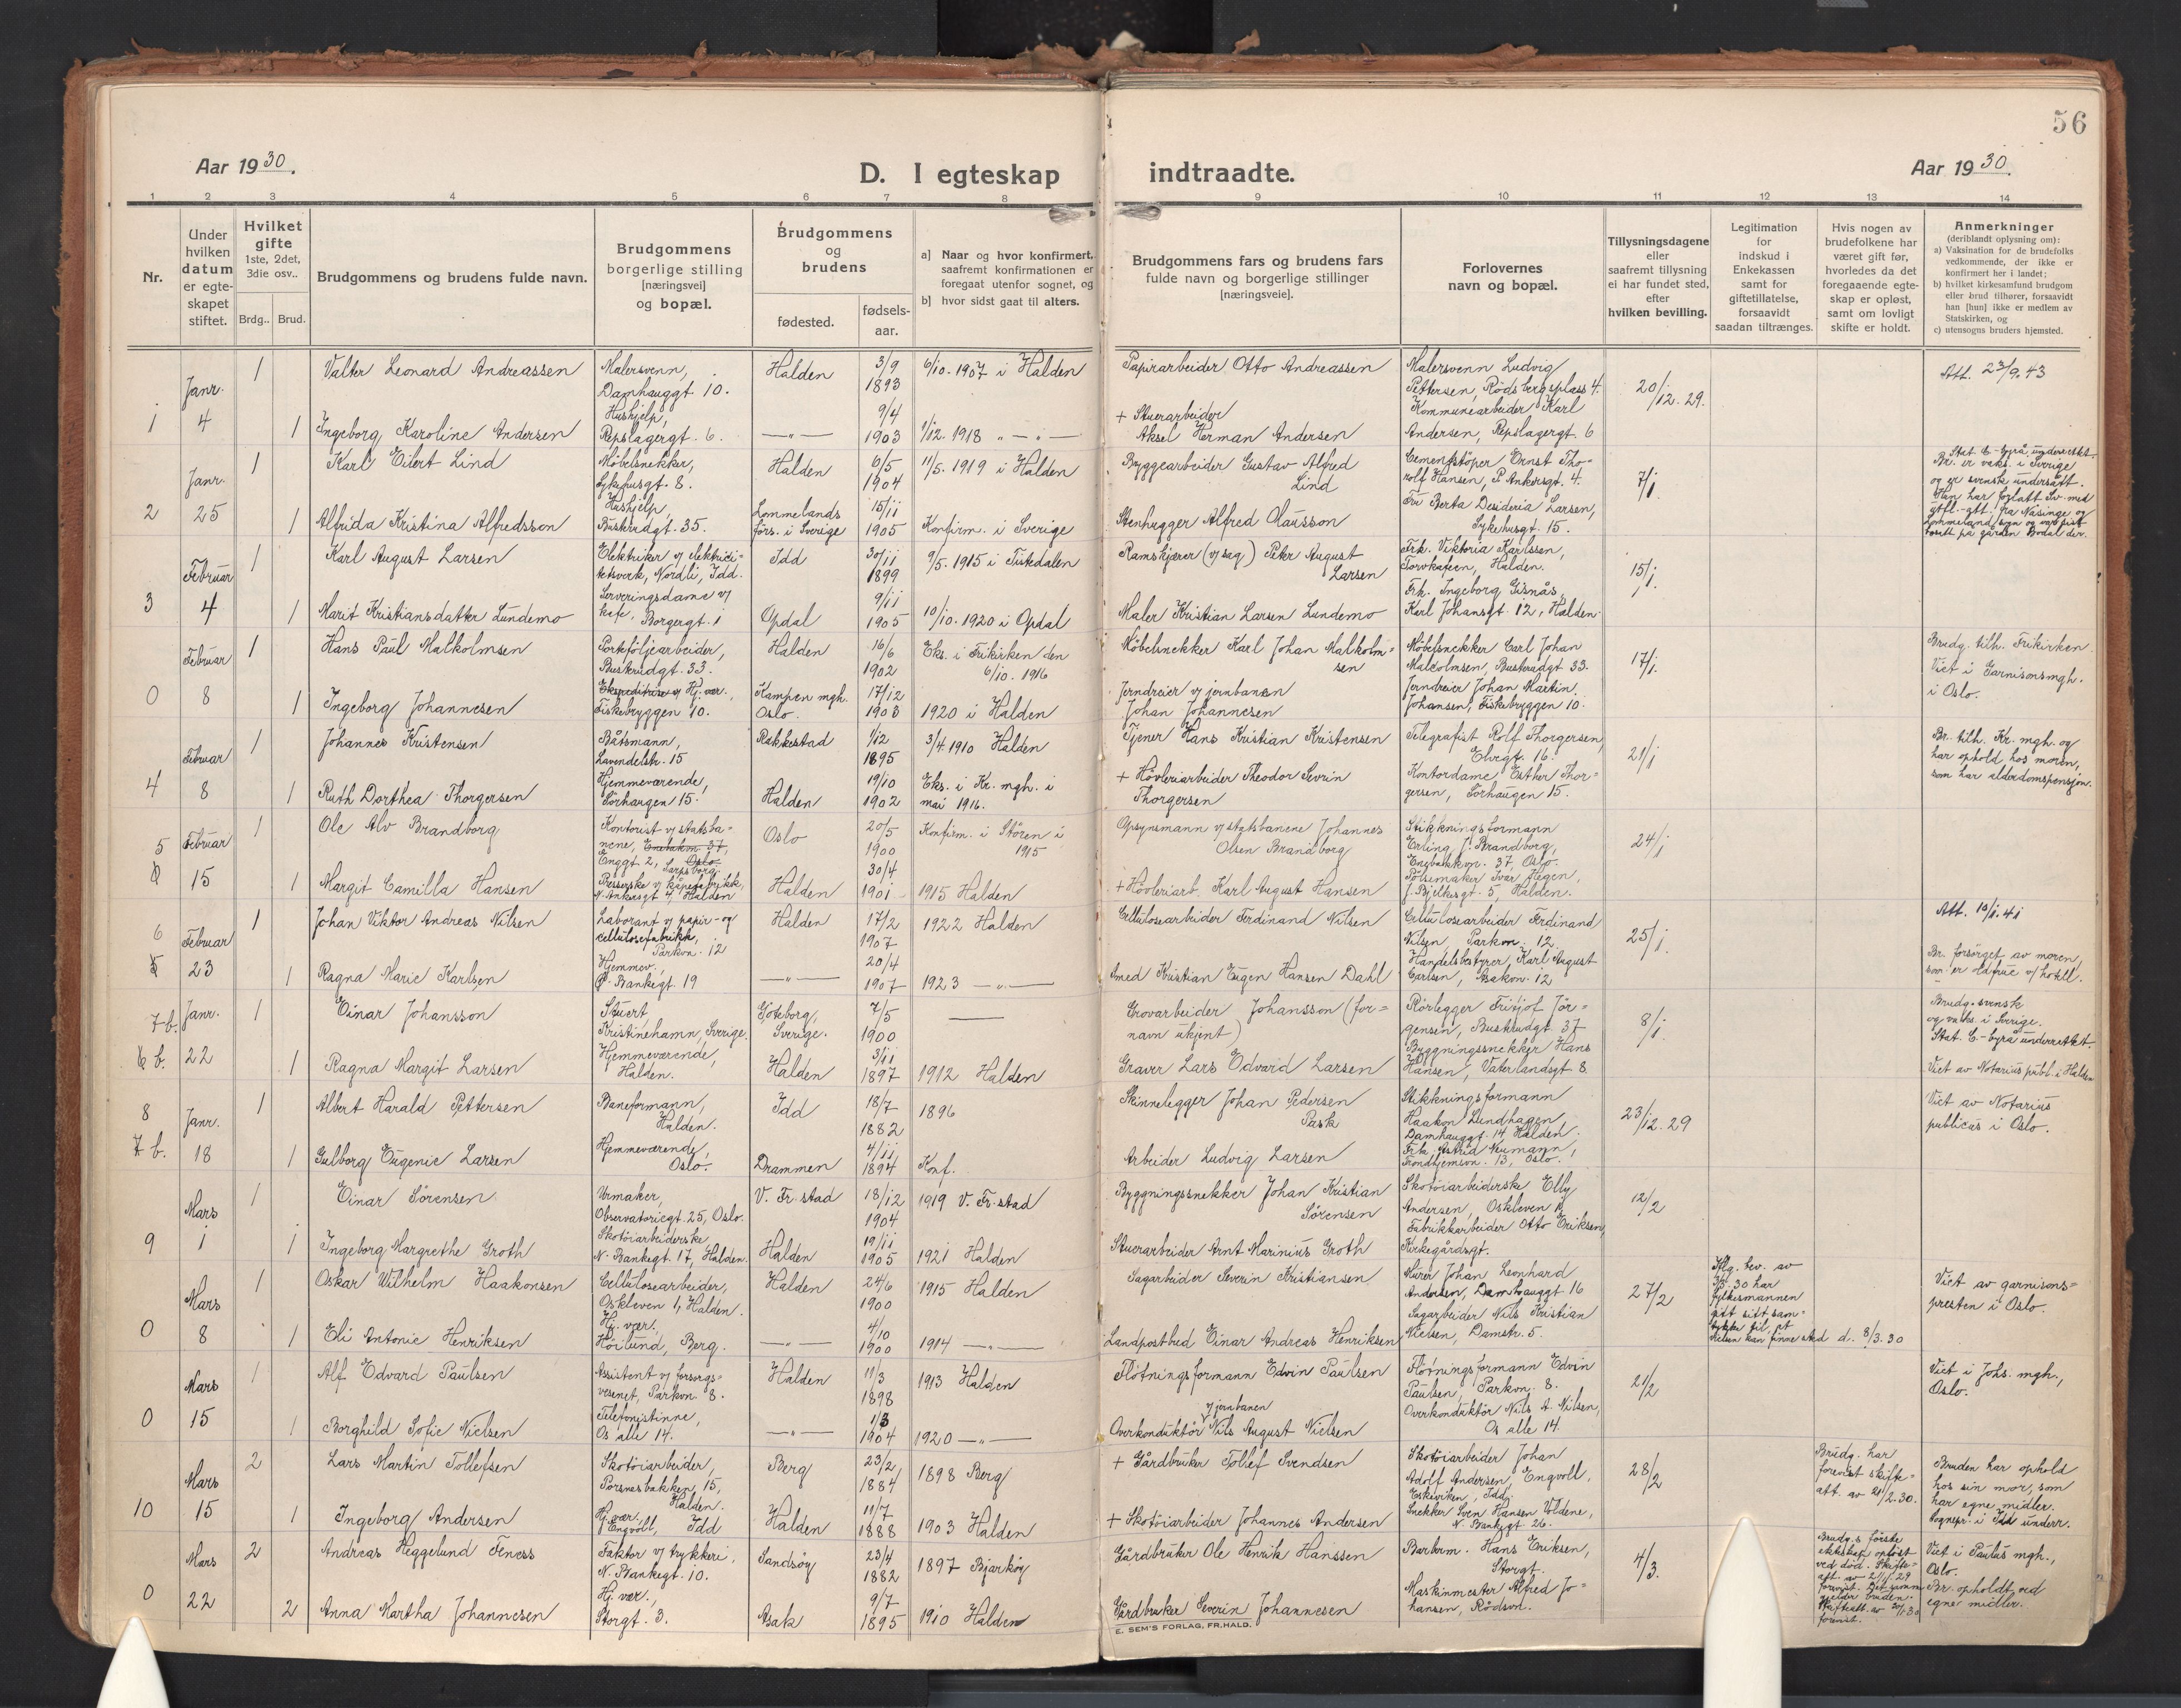 56
Aar 1930.
D. I egteskap indtraadte.
Aar 1930.
1 2 3 4 5 6 7 8 9 10 11 12 13 14
Nr.
Under hvilken datum er egte-skapet stiftet.
Hvilket gifte
1ste, 2det, 3die osv..
Brdg.. Brud.
Brudgommens og brudens fulde navn.
Brudgommens borgerlige stilling [næringsvei] og bopæl.
Brudgommens og brudens
fødested.
fødsels-aar.
a] Naar og hvor konfirmert, saafremt konfirmationen er foregaat utenfor sognet, og
b] hvor sidst gaat til alters.
Brudgommens fars og brudens fars fulde navn og borgerlige stillinger [næringsveie].
Forlovernes navn og bopæl.
Tillysningsdagene eller saafremt tillysning ei har fundet sted, efter hvilken bevilling.
Legitimation for indskud i Enkekassen samt for giftetillatelse, forsaavidt saadan tiltrænges.
Hvis nogen av brudefolkene har været gift før, hvorledes da det foregaaende egte-skap er opløst, samt om lovligt skifte er holdt.
Anmerkninger
(deriblandt oplysning om):
a) Vaksination for de brudefolks vedkommende, der ikke er konfirmert her i landet;
b) hvilket kirkesamfund brudgom eller brud tilhører, forsaavidt han [hun] ikke er medlem av Statskirken, og
c) utensogns bruders hjemsted.
1 Janr. 4
1 Valter Leonard Andreassen
Malersvenn, Damhauggt 10.
Halden
3/9 1893
6/10. 1907 i Halden
Papirarbeider Otto Andreassen
Malersvenn Ludvig Pettersen, Rødsbergsplass 4.
20/12. 29.
Att. 23/9. 43
1 Ingeborg Karoline Andersen
Hushjelp, Repslagergt. 6.
—"—
9/4 1903
1/12. 1918 "—"—
+ Stuerarbeider Aksel Herman Andersen
Kommunearbeider Karl Andersen, Repslagergt. 6
2 Janr. 25
1 Karl Eilert Lind
Møbelsnekker, Sykehusgt. 8.
Halden
6/5 1904
11/5. 1919 i Halden
Byggearbeider Gustav Alfred Lind
Cementstøper Ernst Thorolf Hansen, P. Ankersgt. 4.
7/1.
Stat. C-byrå underrettet.
Br. er vaks. i Sverige og er svensk undersått.
Hun har forlatt Sv. med
fra Näsinge og Lommeland sogn og var sist bosatt på gården Bodal der.
1 Alfrida Kristina Alfredsson
Hushjelp, Buskrudgt. 35.
Lommelands förs. i Sverige
15/11 1905
Konfirm. i Sverige
Stenhugger Alfred Olausson
Fru Berta Desideria Larsen, Sykehusgt. 15.
3 Februar 4
1 Karl August Larsen
Elektriker v/ elektricitetsverk, Nordli, Idd.
Idd
30/11 1899
9/5. 1915 i Tistedalen
Ramskjærer (v/ sag) Peter August Larsen
Frk. Viktoria Karlssen, Torvkafeen, Halden.
15/1.
1 Marit Kristiansdatter Lundemo
Serveringsdame v/ kafe, Borgergt. 1
Opdal
9/11 1905
10/10. 1920 i Opdal
Maler Kristian Larsen Lundemo
Frk. Ingeborg Gisnås, Karl Johansgt. 12, Halden.
0 Februar 8
1 Hans Paul Malkolmsen
Porteföljearbeider, Buskrudgt. 33.
Halden
16/6 1902
Eks. i Frikirken den 6/10. 1916
Møbelsnekker Karl Johan Malkolmsen
Møbelsnekker Carl Johan Malcolmsen, Buskrudgt 33.
17/1.
Brudg. tilh. Frikirken.
Viet i Garnisonsmgh. i Oslo.
1 Ingeborg Johannesen
Ekspeditrise v/ Hj. vær., Fiskebryggen 10.
Kampen mgh. Oslo.
17/12 1903
1920 i Halden
Jerndreier v/ jernbanen Johan Johannesen
Jerndreier Johan Martin Johansen, Fiskebryggen 10.
4 Februar 8
1 Johannes Kristensen
Båtsmann, Lavendelstr. 15
Rakkestad
1/12 1895
3/4 1910 Halden
Tjener Hans Kristian Kristensen
Telegrafist Rolf Thorgersen, 16.
21/1
Br. tilh. Kr. mgh. og har ophold hos moren, som har alderdomspensjon.
1 Ruth Dorthea Thorgersen
Hjemmeværende, Sörhaugen 15.
Halden
19/10 1902
Eks. i Kr. mgh. i mai 1916.
+ Hövleriarbeider Theodor Severin Thorgersen
Kontordame Esther Thorgersen, Sörhaugen 15.
5 Februar 15
1 Ole Alv Brandborg
Kontorist v/ statsbanene, Enebakvn 37, Oslo. Enggt 2, Sarpsborg.
Oslo
20/5 1900
Konfirm. i Stören i 1915
Opsynsmann v/ statsbanene Johannes Olsen Brandborg
Stikkningsformann Erling J. Brandborg, 37, Oslo.
24/1
1 Margit Camilla Hansen
Presserske v/ kåpefabrikk, N. Ankersgt 7, Halden
Halden
30/4 1901
1915 Halden
+ Hövleriarb. Karl August Hansen
Pölsemaker Ivar Hagen, J. Bjelkesgt. 5, Halden.
6 Februar 23
1 Johan Viktor Andreas Nilsen
Laborant v/ papir- og cellulosefabrikk, Parkvn. 12
Halden
17/2 1907
1922 Halden
Cellulosearbeider Ferdinand Nilsen
Cellulosearbeider Ferdinand Nilsen, Parkvn. 12.
25/1.
Att. 10/1. 41
1 Ragna Marie Karlsen
Hjemmev., Ø. Bankegt. 19
—"—
20/4 1907
1923 —"—
Smed Kristian Eugen Hansen Dahl
Handelsbestyrer Karl August Carlsen, Asakvn. 12
Br. forsörget av moren, som er oldfrue v/ hotell.
7 b. Janr. 22
1 Einar Johansson
Stuert, Kristinehamn, Sverige.
Göteborg, Sverige.
7/5 1900
——
Grovarbeider Johansson (fornavn ukjent)
Rörlegger Fritjof Jörgensen, Buskrudgt. 37
8/1.
Brudg. svensk og vaks. i Sverige.
Stat. C-byrå underrettet.
Viet av Notarius publ. i Halden
6 b.
1 Ragna Margit Larsen
Hjemmeværende, Halden.
Halden
3/11 1897
1912 Halden
Graver Lars Edvard Larsen
Byggningssnekker Hans Hansen, Vaterlandsgt 8.
8 Janr. 18
1 Albert Harald Pettersen
Baneformann, Halden.
Idd
18/7 1882
1896
Skinnelegger Johan Pedersen Pask
Stikkningsformann Haakon Lundhagen, Damhauggt. 14 Halden.
23/12. 29
Viet av Notarius publicus i Oslo.
7 b.
1 Gulborg Eugenie Larsen
Hjemmeværende, Oslo.
Drammen
4/11 1894
Konf.
Arbeider Ludvig Larsen
Frk. Astrid Neumann, Trondhjemsvn. 13, Oslo.
9 Mars 1
1 Einar Sörensen
Urmaker, Observatoriegt. 25, Oslo.
V. Fr.stad
18/12 1904
1919 V. Fr.stad
Byggningssnekker Johan Kristian Sörensen
Skotöiarbeiderske Elly Andersen, Oskleven 1,
12/2
1 Ingeborg Margrethe Groth
Skotöiarbeiderske, N. Bankegt. 17, Halden.
Halden
19/11 1905
1921 Halden
Stuerarbeider Arnt Marinius Groth
Fabrikkarbeider Otto Eriksen, Kirkegårdsgt.
0 Mars 8
1 Oskar Wilhelm Haakonsen
Cellulosearbeider, Oskleven 1, Halden.
Halden
24/6 1900
1915 Halden
Sagarbeider Severin Kristiansen
Murer Johan Leonhard Andersen, Damhauggt 16
27/2
bev. av 3/3.30 har fylkesmannen gitt sitt samtykke til at vielsen kan finne sted d. 8/3. 30
Viet av garnisonspresten i Oslo.
1 Eli Antonie Henriksen
Hj. vær., Höilund, Berg.
—"—
4/10 1900
1914 —"—
Landpostbud Einar Andreas Henriksen
Sagarbeider Nils Kristian Nielsen, Damstr. 5.
0 Mars 15
1 Alf Edvard Paulsen
Assistent v/ forsorgsvesenet, Parkvn. 8.
Halden
11/3 1898
1913 Halden
Flötningsformann Edvin Paulsen
Flötningsformann Edvin Paulsen, Parkvn. 8.
21/2
Viet i Johs. mgh., Oslo.
1 Borghild Sofie Nielsen
Telefonistinne, Os alle 14.
—"—
1/3 1904
1920 —"—
Overkonduktör v/ jernbanen Nils August Nielsen
Overkonduktör Nils A. Nilsen, Os alle 14.
10 Mars 15
2 Lars Martin Tollefsen
Skotöiarbeider, Porsnesbakken, 15, Halden.
Berg
23/2 1884
1898 Berg
+ Gårdbruker Tollef Svendsen
Skotöiarbeider Johan Adolf Andersen, Engvoll, Eskeviken, Idd.
28/2
Brudg. har forevist skifteatt. av 21/2.30.
Bruden har ophold hos sin mor, som har egne midler.
Sognepr. i Idd underr.
1 Ingeborg Andersen
Hj. vær., Engvoll, Idd
Halden
11/7 1888
1903 Halden
+ Skotöiarbeider Johannes Andersen
Snekker Sven Hansen Uldene, N. Bankegt 26.
0 Mars 22
2 Andreas Heggelund Feness
Faktor v/ trykkeri, N. Bankegt. 10.
Sandsöy
23/4 1882
1897 Bjarköy
Gårdbruker Ole Henrik Hanssen
Barberm. Hans Eriksen, Storgt.
4/3.
Brudg.s förste ekteskap oplöst ved död. Skifteatt. av forevist.
bruden. Skifteatt. av forevist.
Viet i Paulus mgh., Oslo.
Br. opholdt ved egne midler.
2 Anna Martha Johannesen
Hj. vær., Storgt. 3.
Asak
9/7 1895
1910 Halden
Gårdbruker Severin Johannesen
Maskinmester Alfred Johansen, Rödsvn.
E. SEM'S FORLAG, FR.HALD.